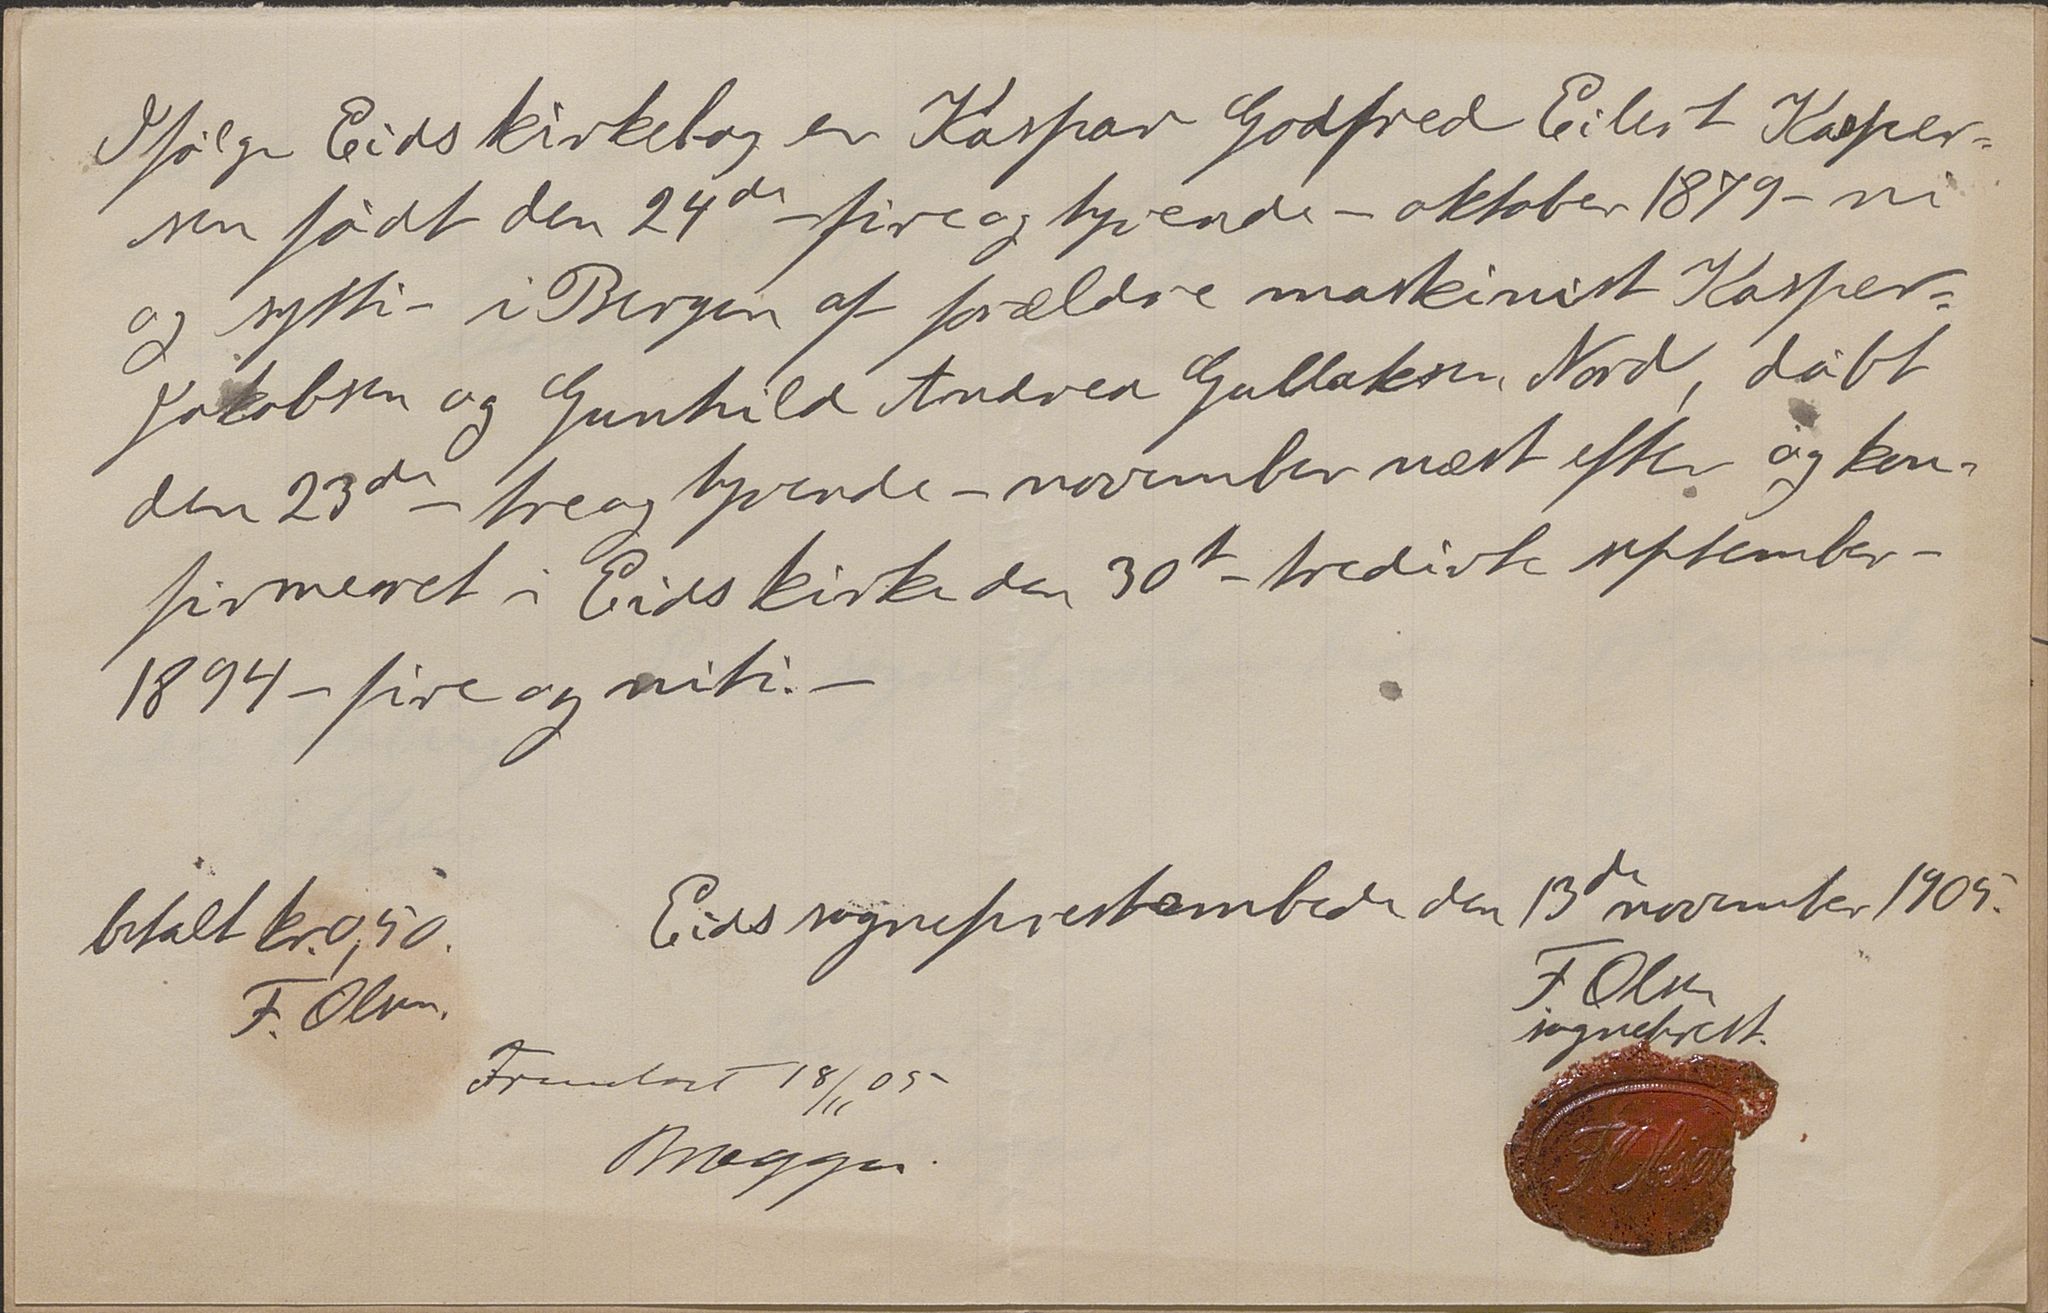 Ifølge Eids kirkebog er Kaspar Godfred Eilert Kasper-
sen født den 24de – fire og tyvende – oktober 1879 – ni
og sytti – i Bergen af forældre maskinist Kasper
Jakobsen og Gunhild Andrea Gullaksen Nord, døbt
den 23de – tre og tyvende – november næst efter og kon-
firmeret i Eids kirke den 30t – tredivte september –
1894 – fire og niti. –
betalt kr. 0,50.
F. Olsen.
Eids sogneprestembede den 13de november 1905.
F. Olsen
sogneprest.
Fremlagt 18/11 05
F Olsen